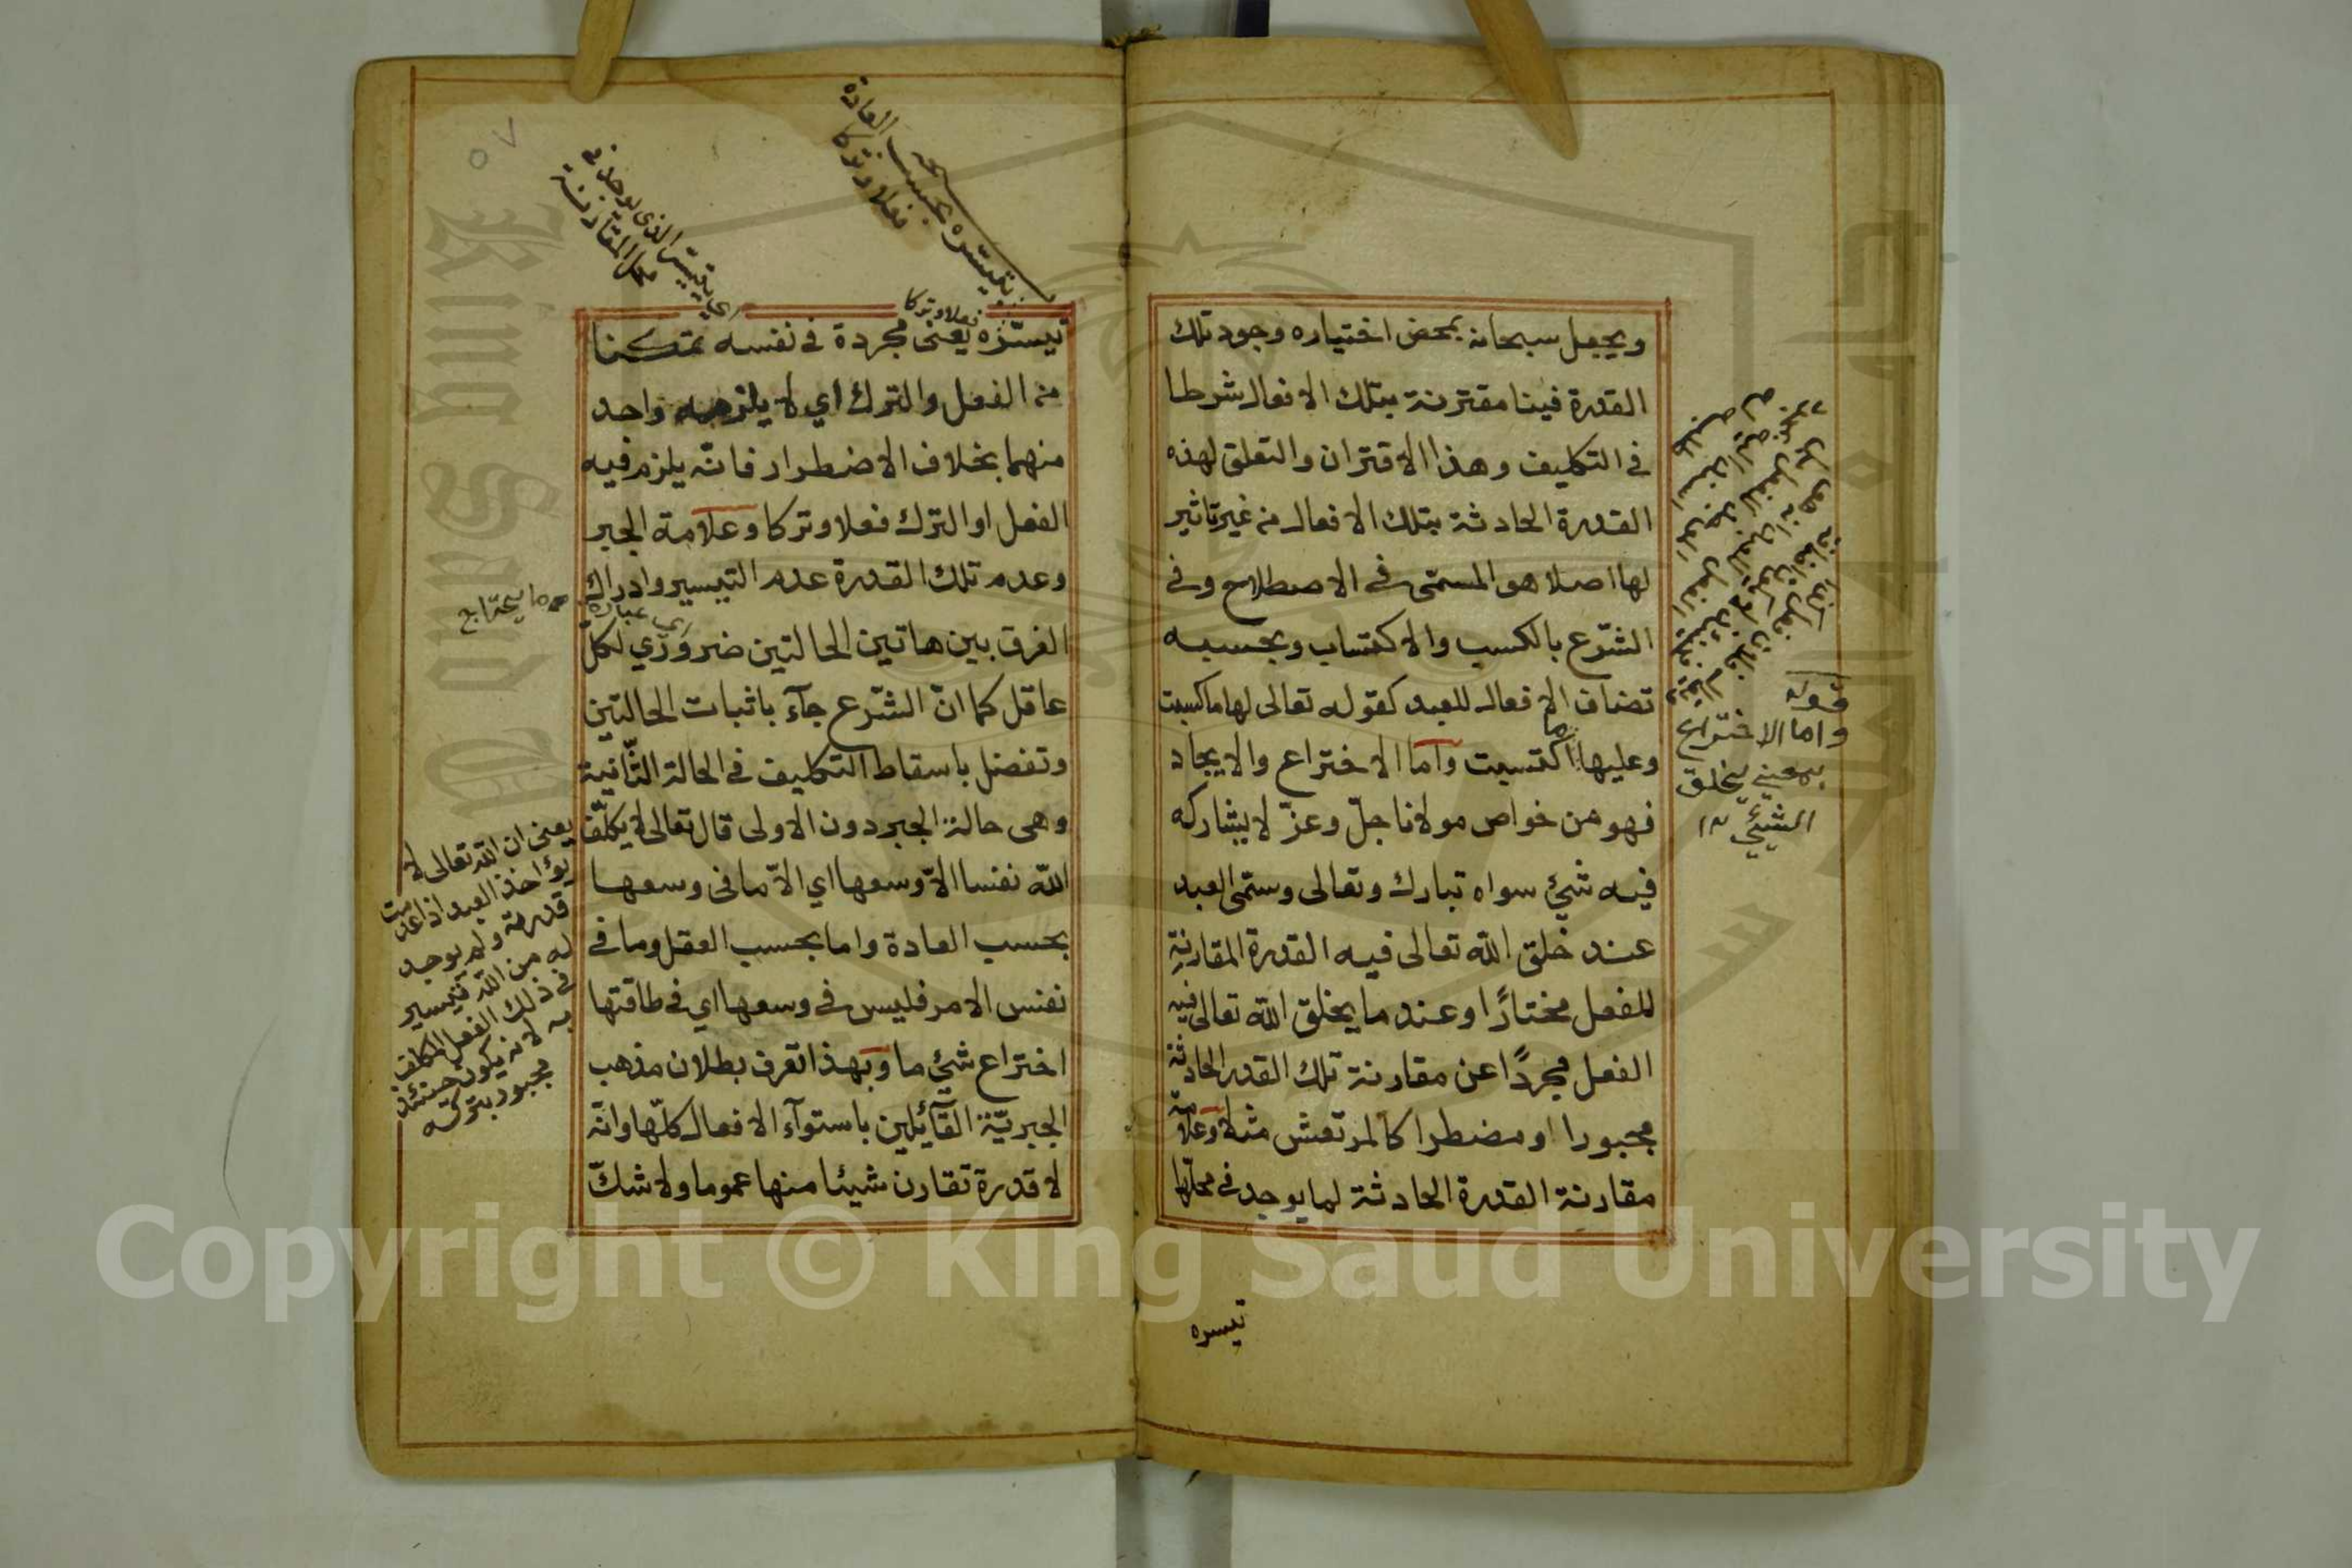 ويجعل سبحانه بمحض اختياره وجود تلك
القدرة فينا مقترنة بتلك الافعال شرطا
في التكليف وهذا الاقتران والتعلق لهذه
القدرة الحادثة بتلك الافعال من غير تاثير
لها اصلا هو المسمّى في الاصطلاح وفي
الشّرع بالكسب والاكتساب وبحسبه
تضاف الافعال للعبد كقوله تعالى لها ما كسبت
وعليها ما اكتسبت وامّا الاختراع والايجاد
فهو من خواص مولانا جلّ وعزّ لا يشاركه
فيه شئ سواه تبارك وتعالى وسمّى العبد
عند خلق الله تعالى فيه القدرة المقارنة
للفعل مختارًا وعند ما يخلق الله تعالى فيه
الفعل مجردًا عن مقارنة تلك القدر الحادثة
مجبورا او مضطرا كالمرتعش مثلا وعلامة
مقارنة القدرة الحادثة لما يوجد في محلّها
قوله
واما الاختراع
بمعنى يخلق
الشيئ ١٢
تيسره
تيسّره يعنى مجردة في نفسه متمكنا
فعلا وتركا
من الفعل والترك اي لا يلزمه واحد
منهما بخلاف الاضطرار فانّه يلزم فيه
الفعل او الترك فعلا وتركا وعلامة الجبر
وعدم تلك القدرة عدم التيسير وادراك
الفرق بين هاتين الحالتين ضروري لكلّ
عاقل كما انّ الشّرع جآء باثبات الحالتين
وتفضل باسقاط التكليف في الحالة الثّانية
وهى حالة الجبر دون الاولى قال تعالى لا يكلّف
اللّه نفسا الاّ وسعها اي الاّ ما في وسعها
بحسب العادة واما بحسب العقل وما في
نفس الامر فليس في وسعها اي في طاقتها
اختراع شئ ما وبهذا تعرف بطلان مذهب
الجبريّة القآئيلين باستوآء الافعال كلّها وانّه
لا قدرة تقارن شيئا منها عموما ولا شكّ
بتيسره بحسب العادة
فعلا وتركا
اي يتيسّر الذي يوجد في
محل المقارنة
ما يحتاج
اي عبارة
يعنى ان الله تعالى لا
يؤاخذ العبد اذا عدمت
قدرته ولم يوجد
له من الله تيسير
في ذلك الفعل المكلف
به لانه يكون حينئذ
مجبور بتركه
٥٧
Copyright © King Saud University